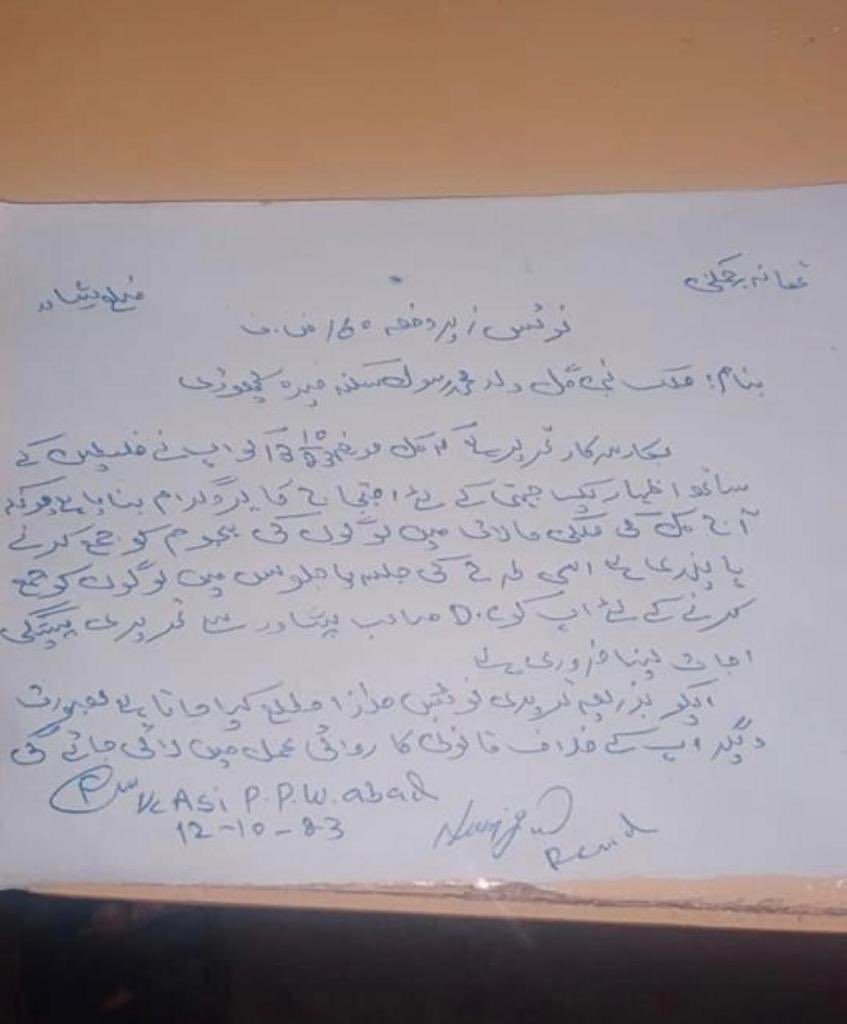 تھانہ چمکنی ضلع پشاور
نوٹس زیر دفعہ 160/ ض۔ف
بنام: ملک نبی گل ولد محمد رسول سکنہ میرہ کچھوڑی
بکار سرکار تحریر ہے کہ کل مورخہ 13/10/23 کو آپ نے فلسطین کے
ساتھ اظہار یک جہتی کے لئے احتجاج کا پروگرام بنایا ہے جو کہ
آج کل کی ملکی حالات میں لوگوں کی ہجوم کو جمع کرنے
پابندی ہے اسی طرح کی جلسہ یا جلوس میں لوگوں کو جمع
کرنے کے لئے آپ کو D.C صاحب پشاور سے تحریری پیشگی
اجازت لینا ضروری ہے
آپکو بذریعہ تحریری نوٹس ہذا مطلع کیا جاتا ہے بصورت
دیگر آپ کے خلاف قانونی کاروائی عمل میں لائی جائے گی
ASi P.P.W.abad
12-10-23